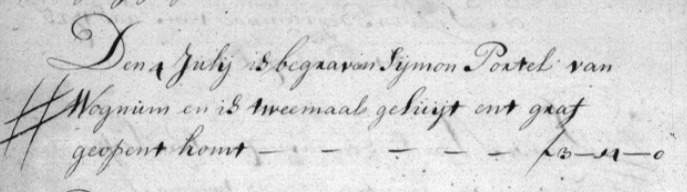 Den 4 Julij is begraven Sijmon Portel van
Wognum en is tweemaal geluijt ent graf
geopent komt — — — — — ƒ3—11—0